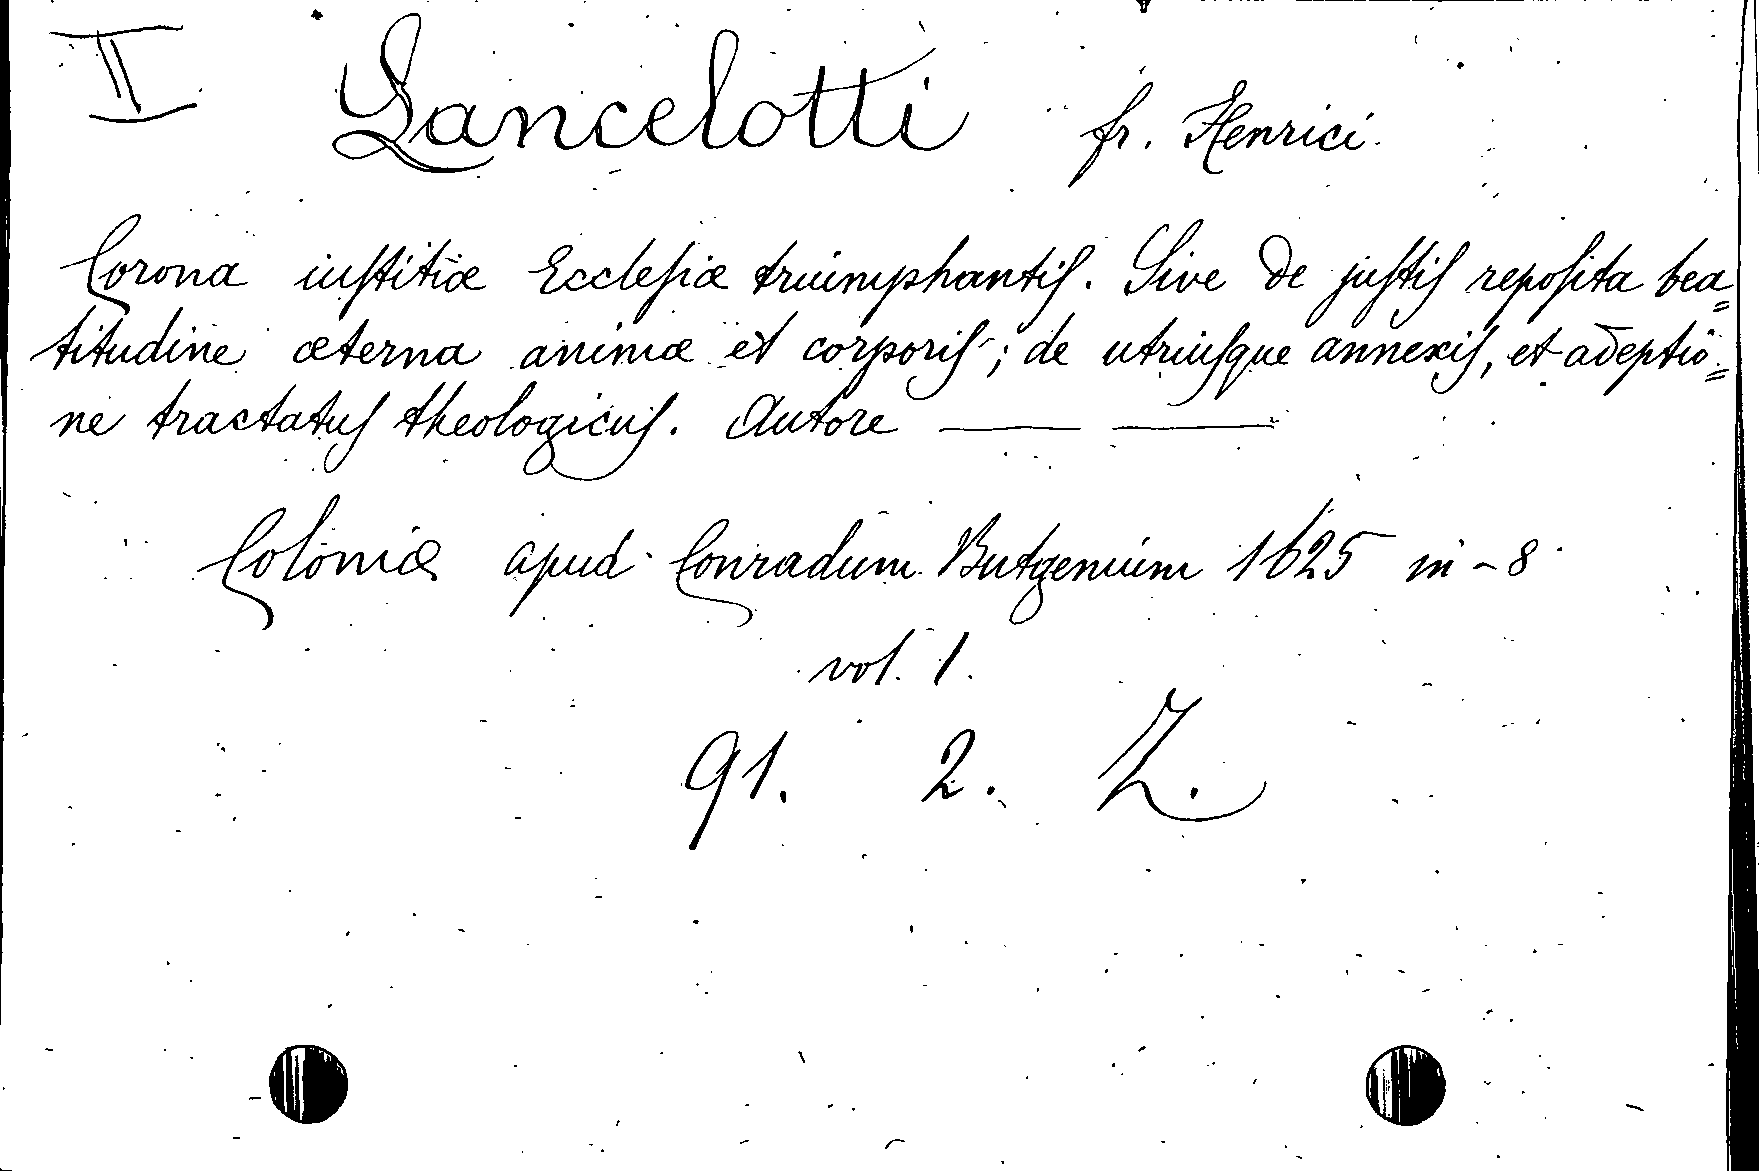 II Lancelotti fr. Henrici.
Corona iuſtitiæ Eccleſiæ truimphantiſ. Sive de juſtiſ repoſita bea=
titudine æterna animæ et corporiſ; de utriuſque annexiſ, et adeptio=
ne tractatuſ theologicuſ. Autore ——— ———
Coloniæ apud Conradum Butgenium 1625 in-8
vol. 1.
91. 2. Z.